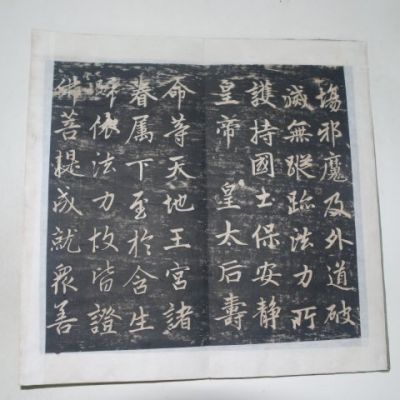 塲邪魔及外道破
滅無蹤跡法力所
護持國土保安静
皇帝 皇太后壽
命等天地王宮諸
眷属下至於含生
歸依法力故皆證
佛菩提成就眾善